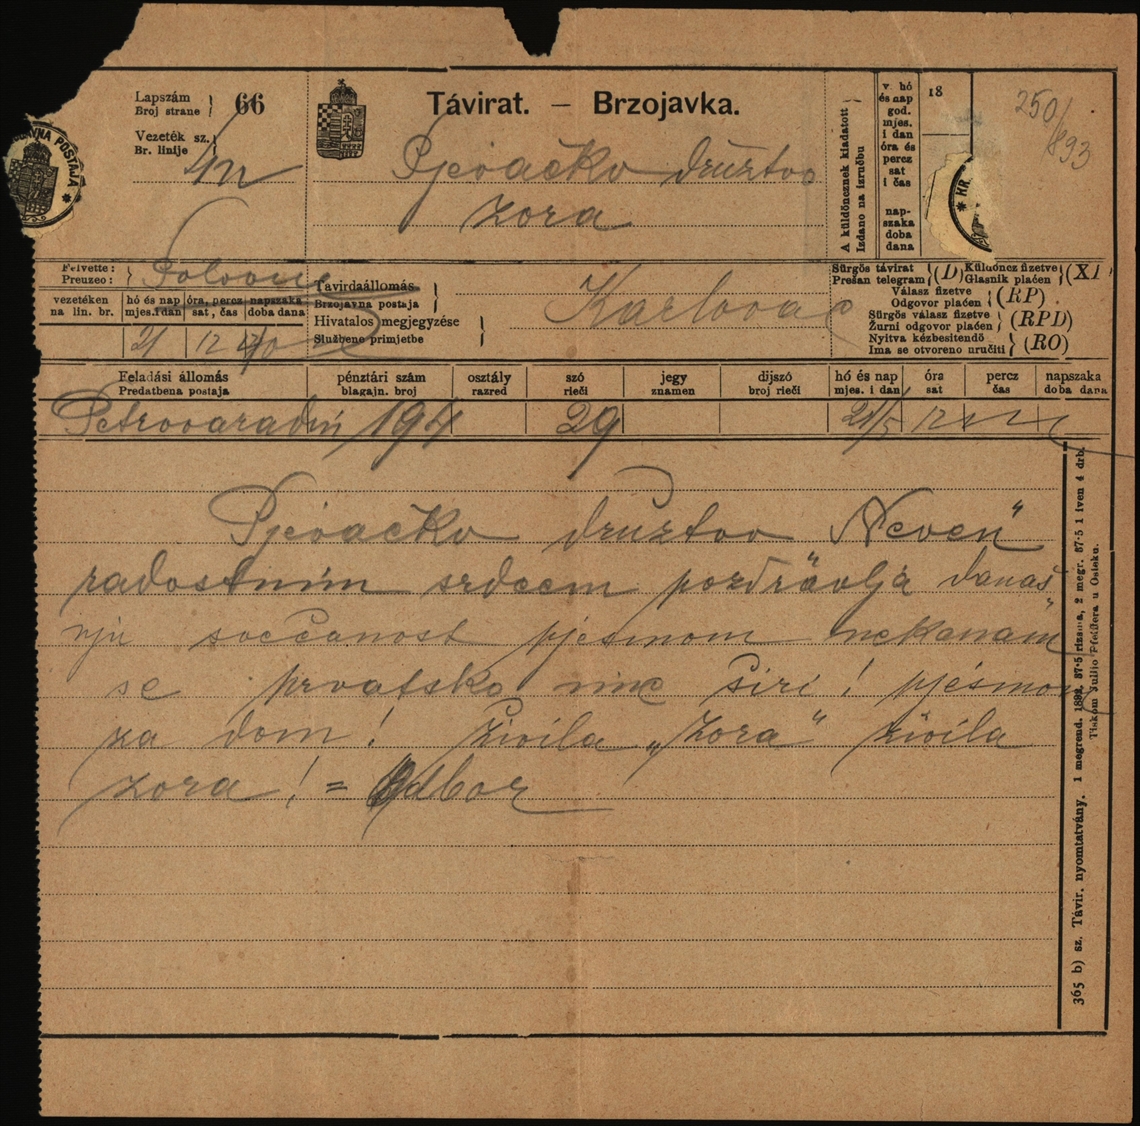 Lapszám
Broj strane } 66
Vezeték sz.
Br. linije }
Távirat. – Brzojavka.
Pjevačko družtvo
Zora
A küldöncznek kiadatott
Izdano na izručbu
v. hó
és nap
god.
mjes.
i dan
óra és
percz
sat
i čas
nap-
szaka
doba
dana
18
250/893
AVNA POSTAJA *
* HR.
Felvette :
Preuzeo : }
Távirdaállomás
Brzojavna postaja
Hivatalos megjegyzése
Službene primjetbe }
Karlovac
Sürgős távirat
Prešan telegram } (D)
Küldöncz fizetve
Glasnik plaćen } (XP
Válasz fizetve
Odgovor plaćen } (RP)
Sürgős válasz fizetve
Žurni odgovor plaćen } (RPD)
Nyitva kézbesitendő
Ima se otvoreno uručiti } (RO)
vezetéken
na lin. br.
hó és nap
mjes. i dan
óra, percz
sat, čas
napszaka
doba dana
21 12
Feladási állomás
Predatbena postaja
pénztári szám
blagajn. broj
osztály
razred
szó
rieči
jegy
znamen
dijszó
broj rieči
hó és nap
mjes. i dan
óra
sat
percz
čas
napszaka
doba dana
Petrovaradin 194 29 21/5 12
Pjevačko družtvo Neven"
radostnim srdcem pozdravlja današ
nju svečanost pjesmom nek nam
se hrvatsko ime širi! pjesmom
za dom! Živila „Zora" živila
zora! = Odbor
365 b) sz. Távir. nyomtatvány. 1 megrend. 1892. 37·5 rizsma, 2 megr. 57·5 1 iven 4 drb.
Tiskom Julio Pfeiffera u Osieku.